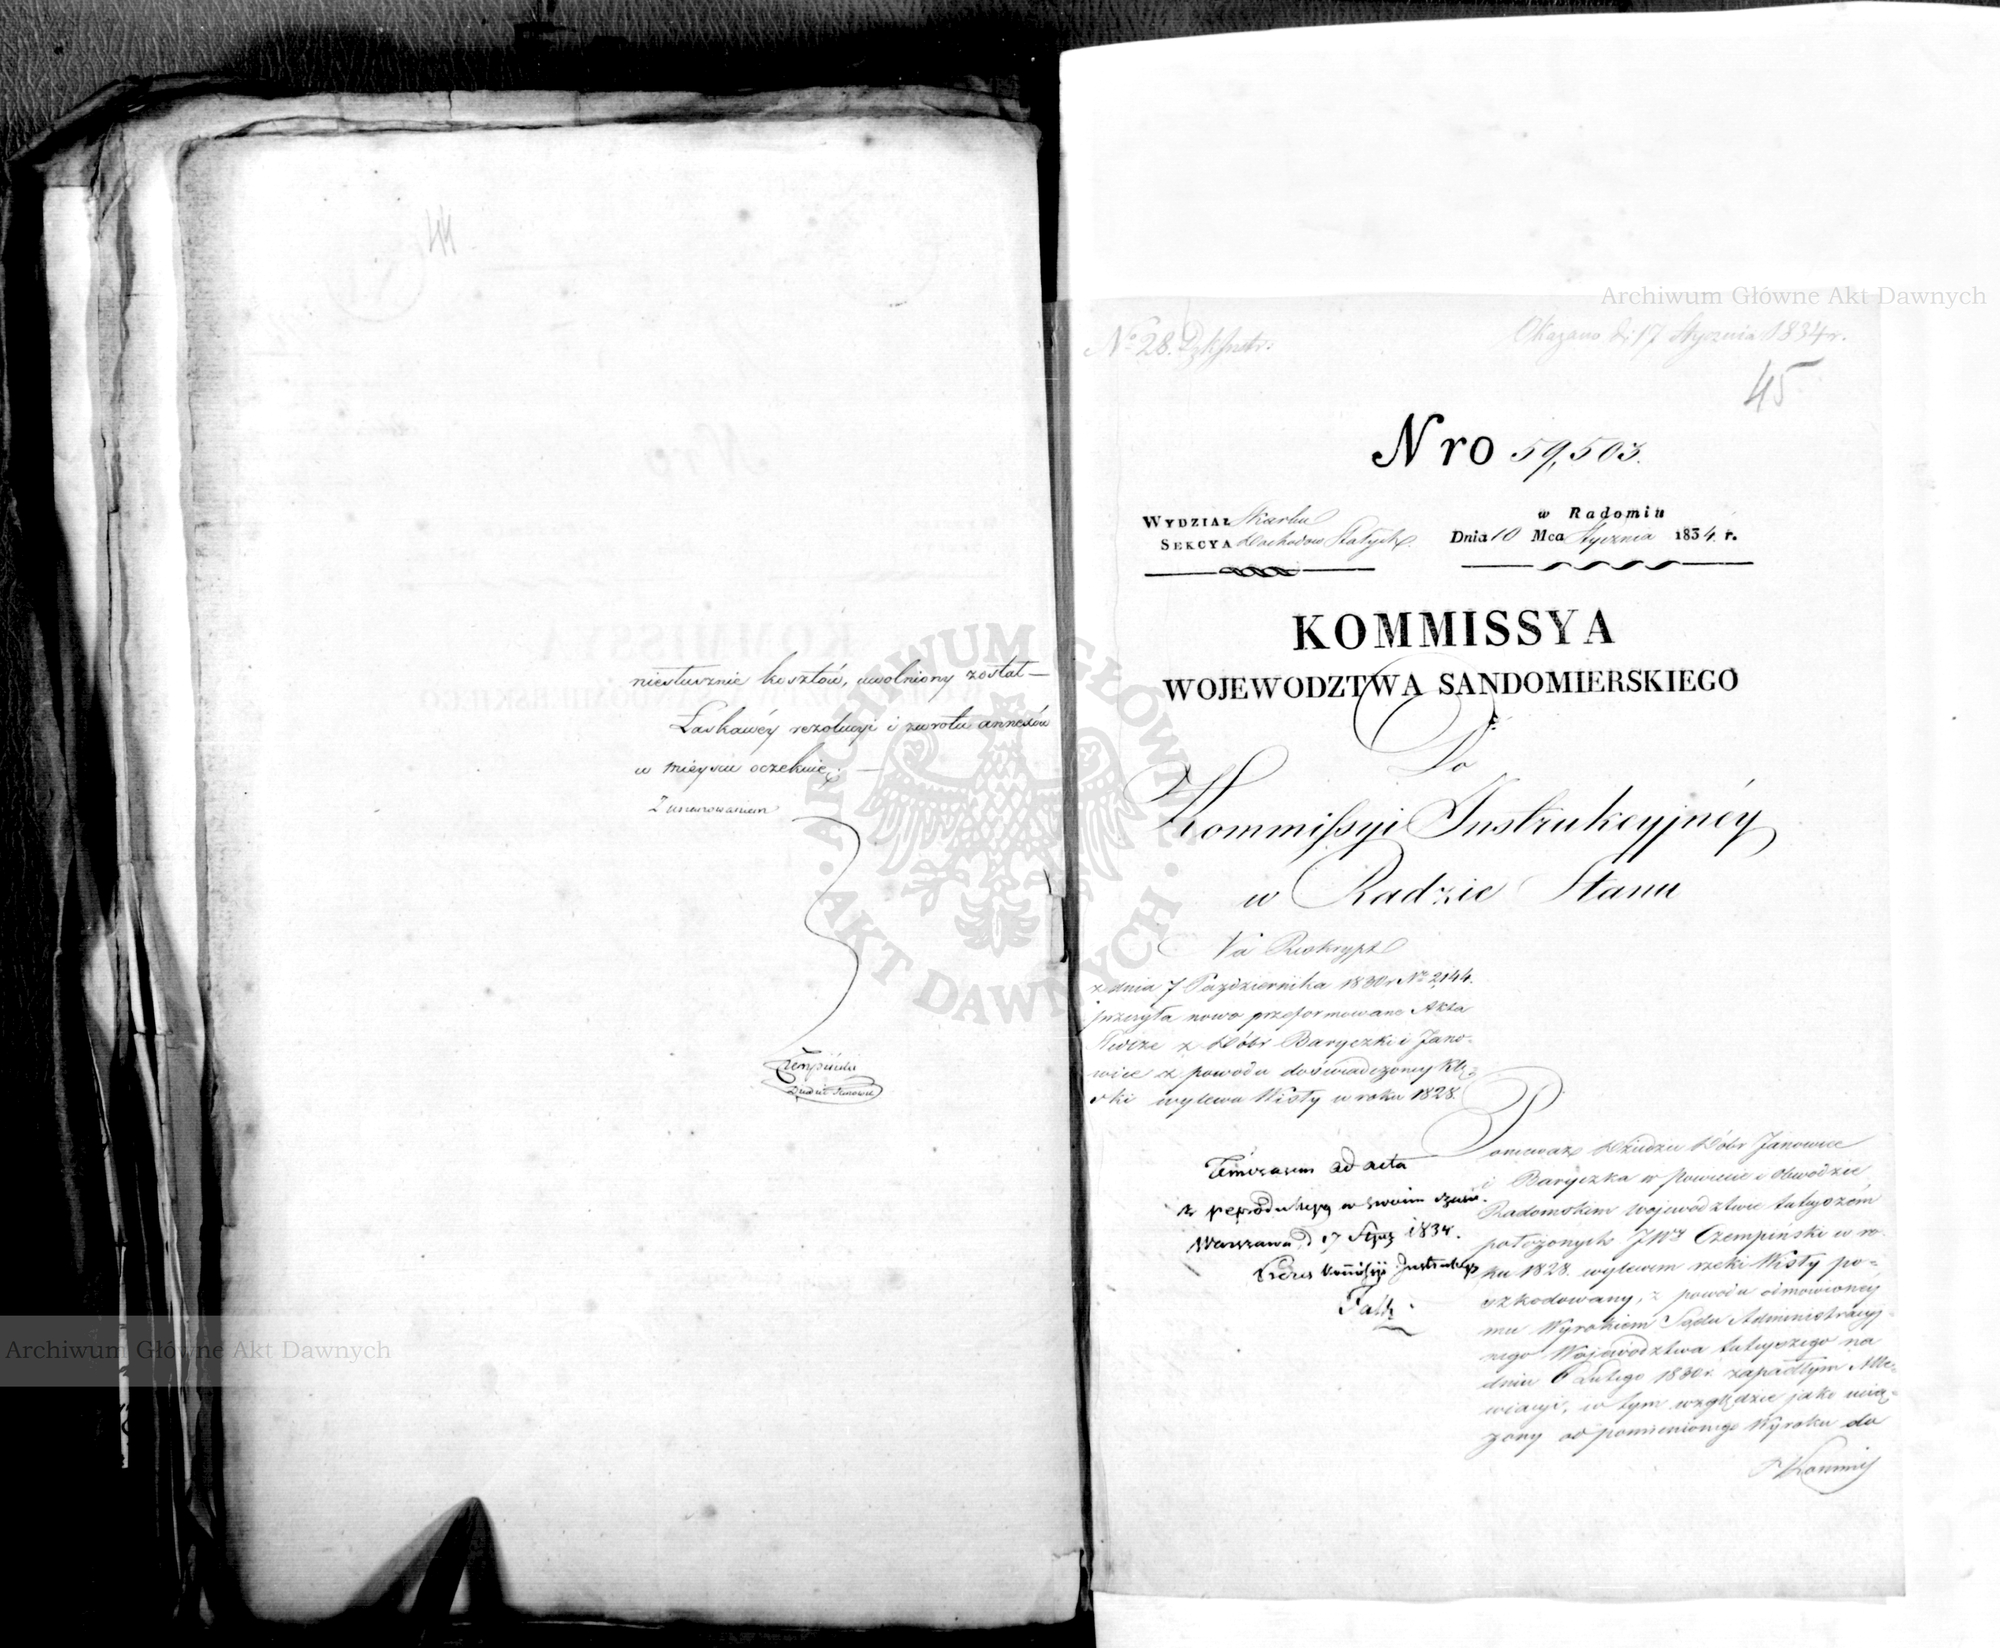 44
niesłusznie kosztów, uwolniony został —
Łaskawéy rezolucyi i zwrotu annexów
w mieyscu oczekuię. —
Z uszanowaniem
Czempiński
Dziedzic Janowic
Archiwum Główne Akt Dawnych
ARCHIWUM GŁÓWNE · AKT DAWNYCH ·
Archiwum Główne Akt Dawnych
No 28.
Okazano d. 17 Stycznia 1834 r.
45
Nro 59,503.
WYDZIAŁ Skarbu
SEKCYA Dochodow Stałych.
w Radomiu
Dnia 10 Mca Stycznia 1834. r.
KOMMISSYA
WOJEWODZTWA SANDOMIERSKIEGO
Do
Kommissyi Instrukcyjnéy
w Radzie Stanu
Na Reskrypt
z dnia 7 Października 1830 r No 2,144.
przesyła nowo przeformowane Akta
z Dóbr Baryczki i Jano-
wice z powodu doświadczoney Klę-
ski wylewu Wisły w roku 1828.
Timczasem ad acta
w swoim czasie.
Warszawa d 17 Stycz 1834.
Prezes Kommissyi Instrukcyj
Falk
Ponieważ Dziedzic Dóbr Janowice
i Baryczka w powiecie i Obwodzie
Radomskim Województwie tuteyszém
położonych JWy Czempiński w ro-
ku 1828. wylewem rzeki Wisły po-
szkodowany, z powodu odmówionéy
mu Wyrokiem Sądu Administracyj-
nego Województwa tuteyszego na
dniu 6 Lutego 1830 r. zapadłym Alle-
wiacyi, w tym względzie jako ucią-
żony od pomienionego Wyroku do
Kommis